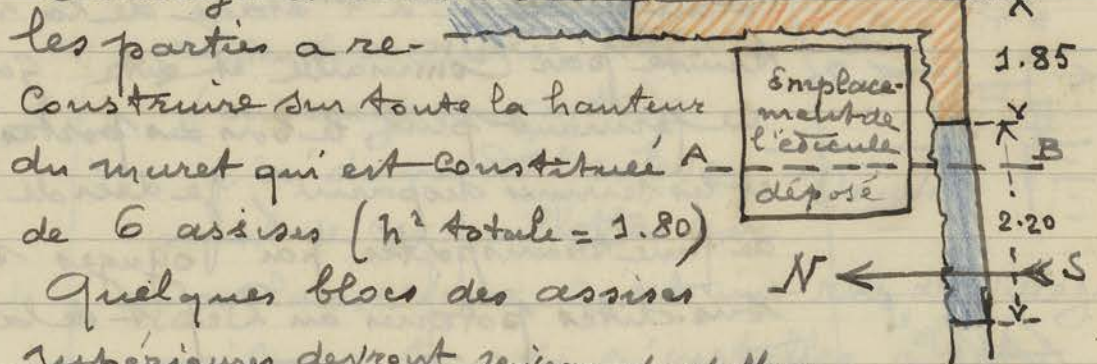 les parties a re-
construire sur toute la hauteur
du muret qui est constituée
de 6 assises (hʳ totale = 1.80)
Quelques blocs des assises
supérieures devront
Emplace-
ment de
l'édicule
déposé
A
B
1.85
2.20
N
S